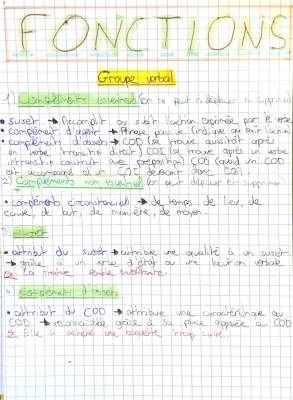 FONCTIONS
Groupe verbal
1) Compléments essentiels (on ne peut ni déplacer ni supprimer)
• sujet → Accomplit ou subit l'action exprimée par le verbe
• complément d'agent → Phrase passive (indique qui fait l'action)
• compléments d'objets → COD (se trouve aussitôt après
un verbe transitif direct) COI (se trouve après un verbe
intransitif construit avec préposition) COS (quand un COD
est accompagné d'un COI devient donc COS)
2) Compléments non essentiels (on peut déplacer et supprimer)
• complément circonstanciel → de temps, de lieu, de
cause, de but, de manière, de moyen.
3)
• attribut du sujet → attribue une qualité à un sujet
→ grâce à un verbe d'état ou une locution verbale
Ex: La semble
4) Complément d'objet
• attribut du COD → attribue une caractéristique au
COD → reconnaissable grâce à sa place apposée au COD
Ex: Elle a acheté une trop